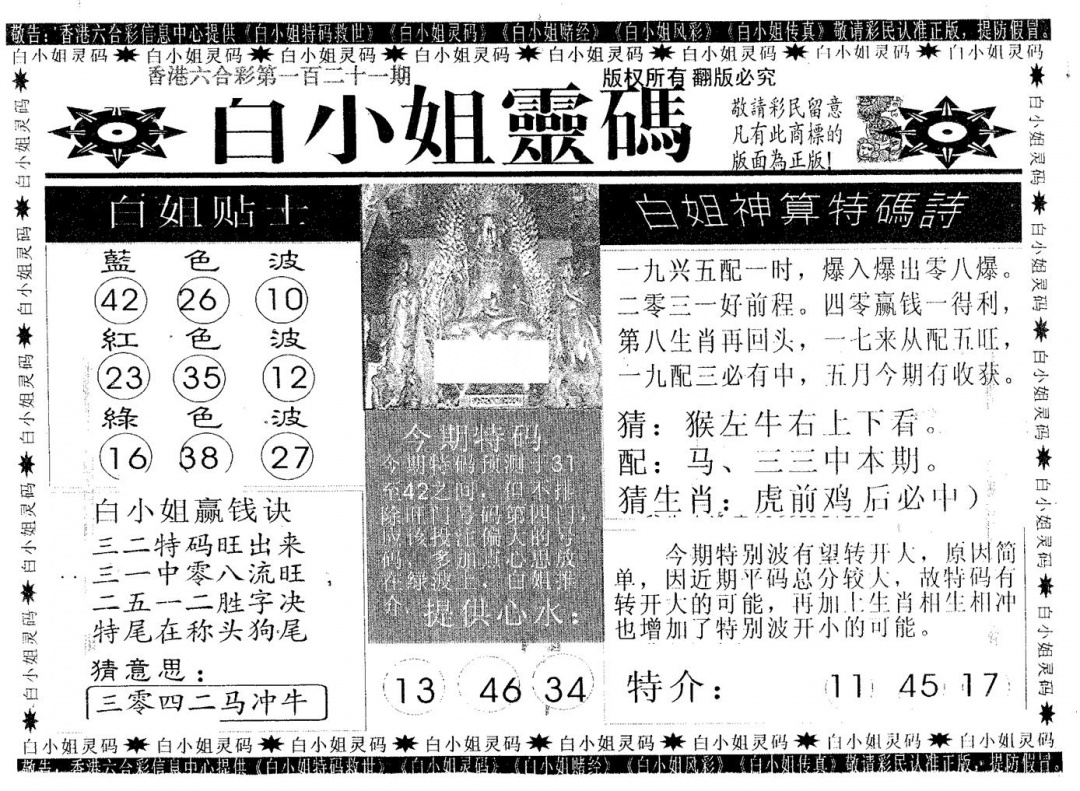 敬告：香港六合彩信息中心提供《白小姐特码救世》《白小姐灵码》《白小姐赌经》《白小姐风彩》《白小姐传真》敬请彩民认准正版，提防假冒。
白小姐灵码 白小姐灵码 白小姐灵码 白小姐灵码 白小姐灵码 白小姐灵码 白小姐灵码 白小姐灵码
香港六合彩第一百二十一期
版权所有 翻版必究
白小姐靈碼
敬請彩民留意
凡有此商標的
版面為正版！
白姐贴士
藍色波
42 26 10
紅色波
23 35 12
綠色波
16 38 27
白小姐赢钱诀
三二特码旺出来
三一中零八流旺
二五一二胜字决
特尾在称头狗尾
猜意思：
三零四二马冲牛
今期特码
今期特码预测于31
至42之间，但不排
除旺门号码第四门，
提供心水：
13 46 34
白姐神算特碼詩
一九兴五配一时，爆入爆出零八爆。
二零三一好前程。四零赢钱一得利，
第八生肖再回头，一七来从配五旺，
一九配三必有中，五月今期有收获。
猜：猴左牛右上下看。
配：马、三三中本期。
猜生肖：虎前鸡后必中）
今期特别波有望转开大，原因简
单，因近期平码总分较大，故特码有
转开大的可能，再加上生肖相生相冲
也增加了特别波开小的可能。
特介： 11 45 17
白小姐灵码 白小姐灵码 白小姐灵码 白小姐灵码 白小姐灵码
白小姐灵码 白小姐灵码 白小姐灵码 白小姐灵码 白小姐灵码
白小姐灵码 白小姐灵码 白小姐灵码 白小姐灵码 白小姐灵码 白小姐灵码 白小姐灵码 白小姐灵码
敬告：香港六合彩信息中心提供《白小姐特码救世》《白小姐灵码》《白小姐赌经》《白小姐风彩》《白小姐传真》敬请彩民认准正版，提防假冒。